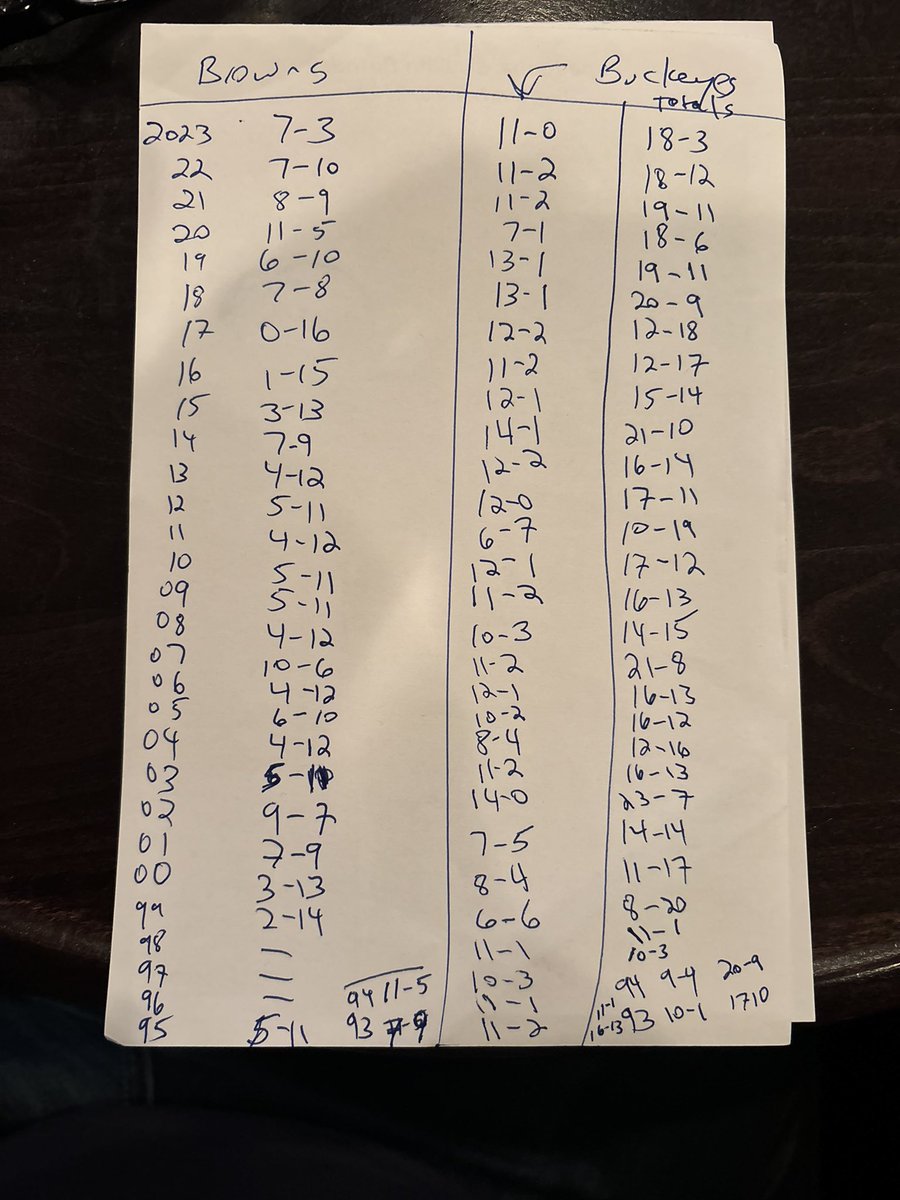 Browns ✓ Buckeyes
Totals
2023 7-3 11-0 18-3
22 7-10 11-2 18-12
21 8-9 11-2 19-11
20 11-5 7-1 18-6
19 6-10 13-1 19-11
18 7-8 13-1 20-9
17 0-16 12-2 12-18
16 1-15 11-2 12-17
15 3-13 12-1 15-14
14 7-9 14-1 21-10
13 4-12 12-2 16-14
12 5-11 12-0 17-11
11 4-12 6-7 10-19
10 5-11 12-1 17-12
09 5-11 11-2 16-13
08 4-12 10-3 14-15
07 10-6 11-2 21-8
06 4-12 12-1 16-13
05 6-10 10-2 16-12
04 4-12 8-4 12-16
03 5-11 11-2 16-13
02 9-7 14-0 23-7
01 7-9 7-5 14-14
00 3-13 8-4 11-17
99 2-14 6-6 8-20
98 — 11-1 11-1
97 — 10-3 10-3
96 — 94 11-5 11-1 11-1 94 9-4 20-9
95 5-11 93 7-9 11-2 16-13 93 10-1 1710